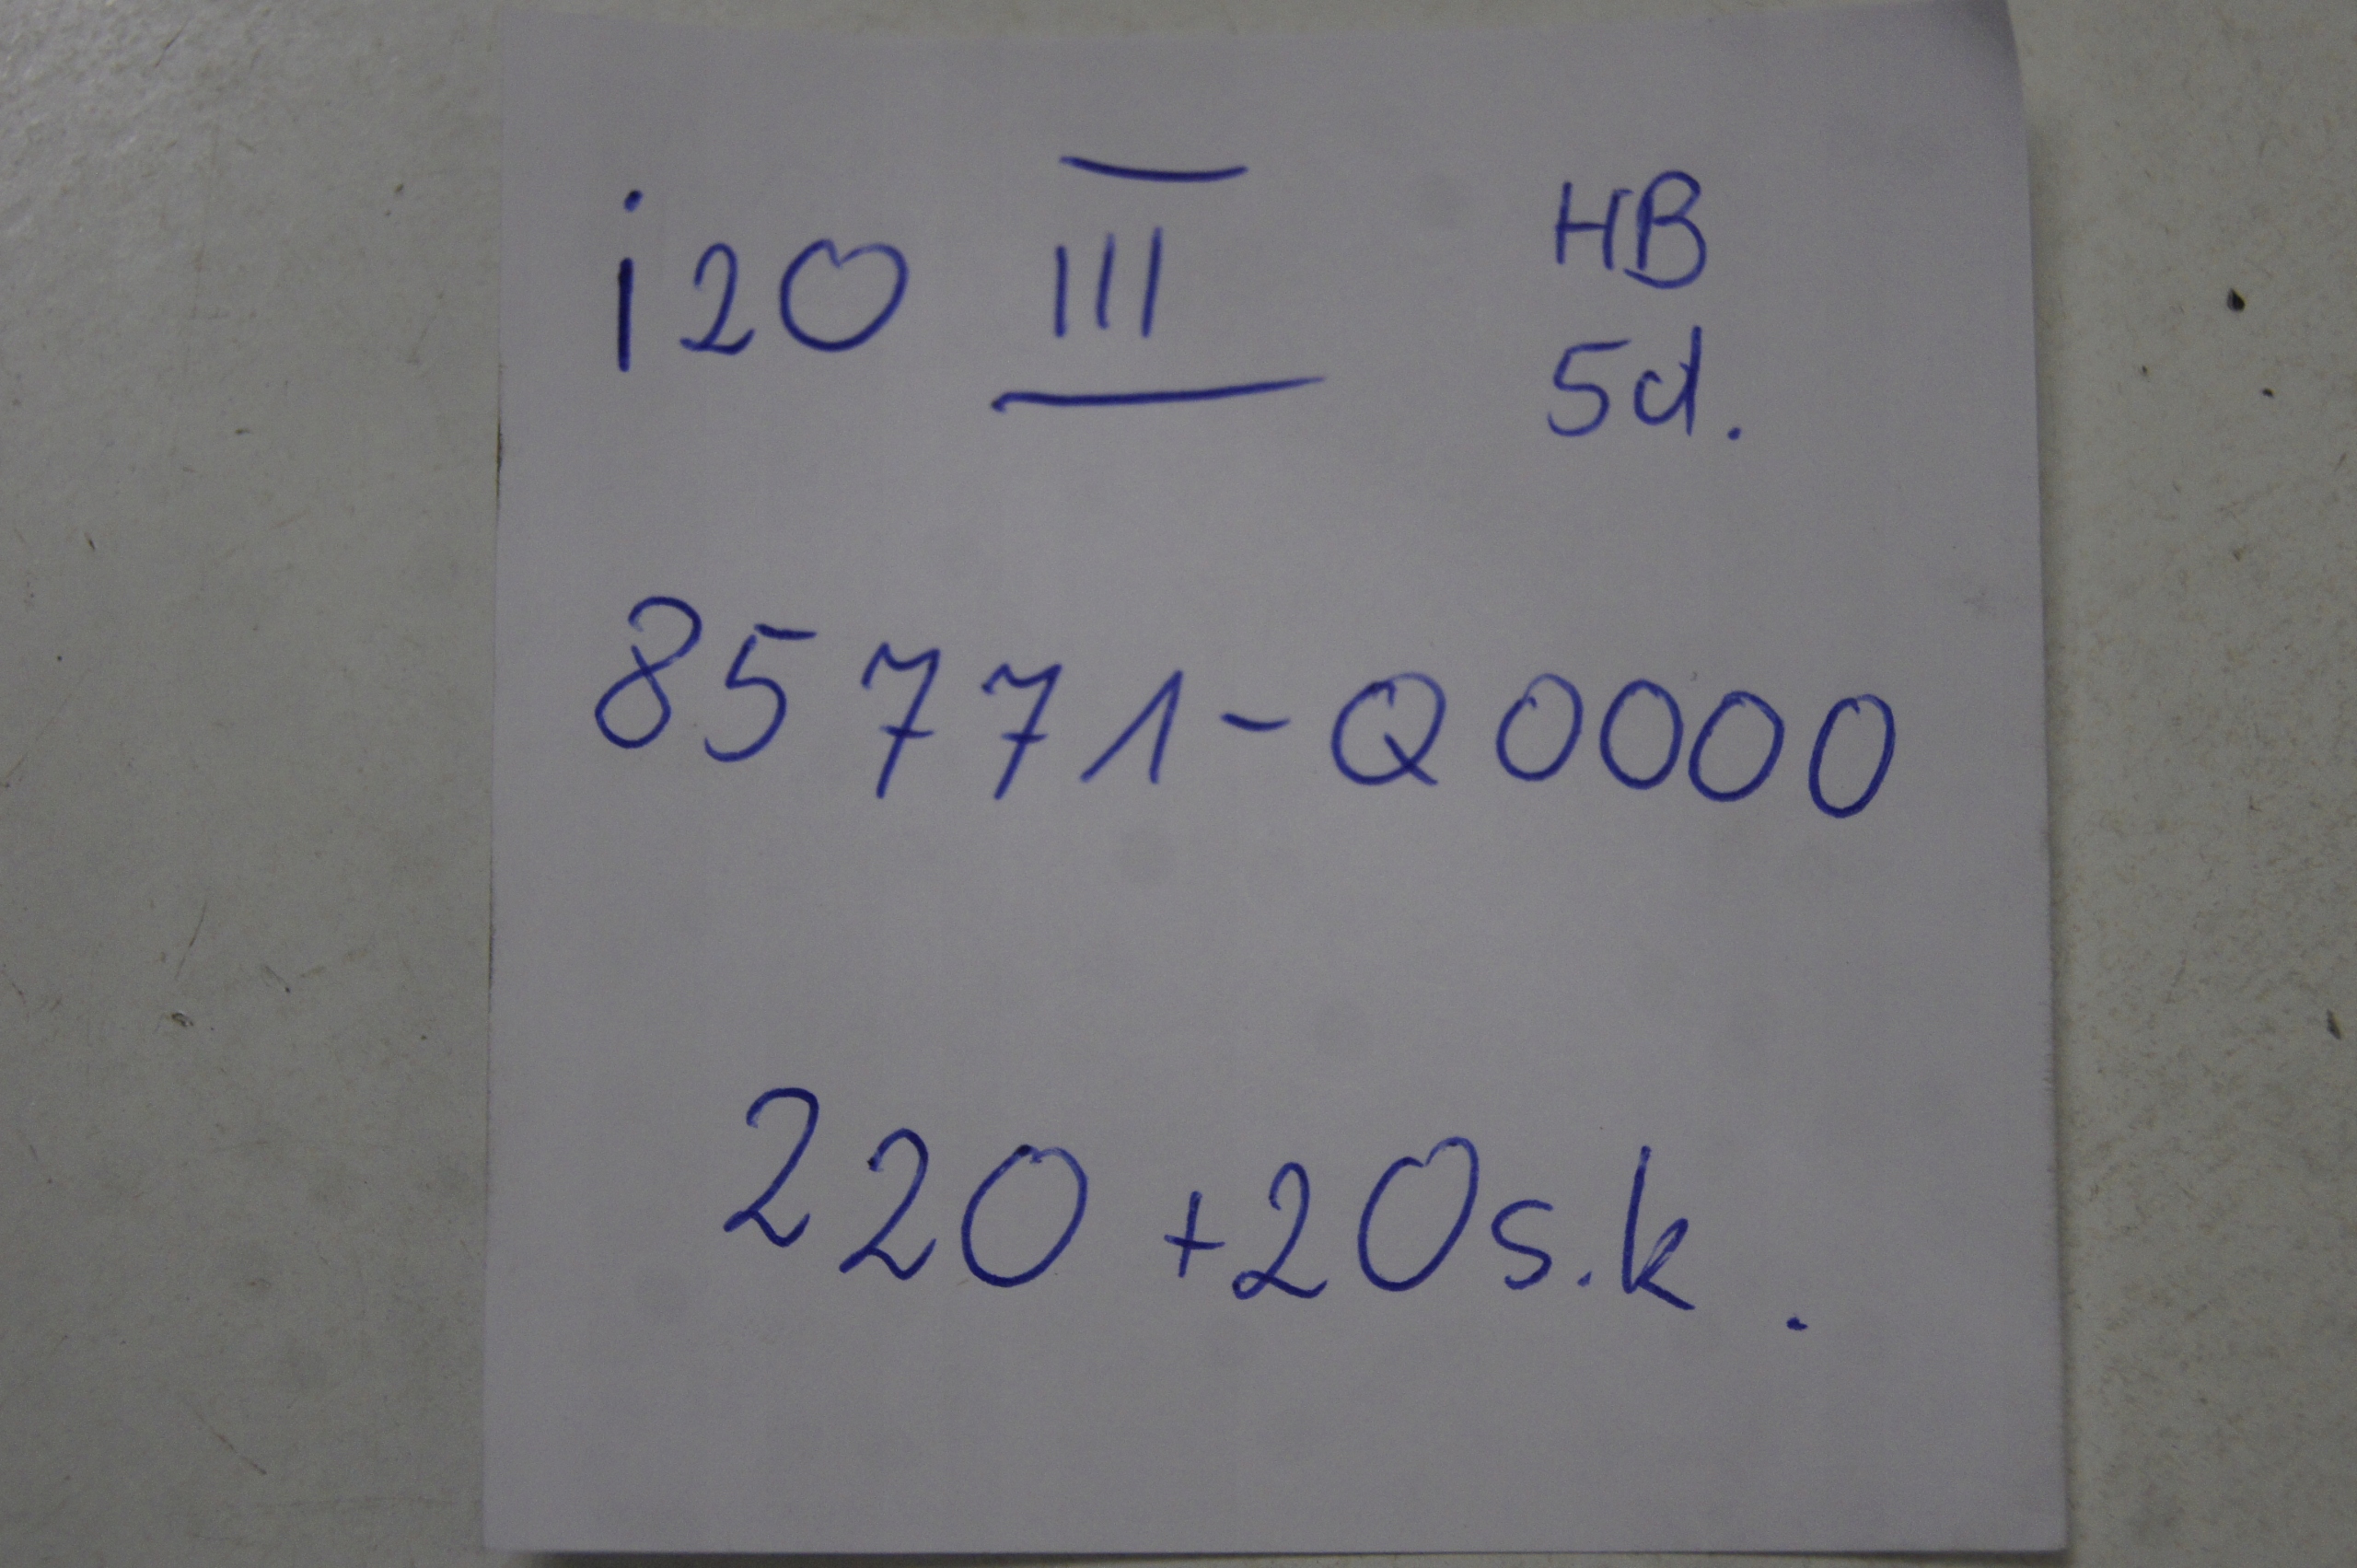 i20 III HB
5d.
85771-Q0000
220 +20 s.k.